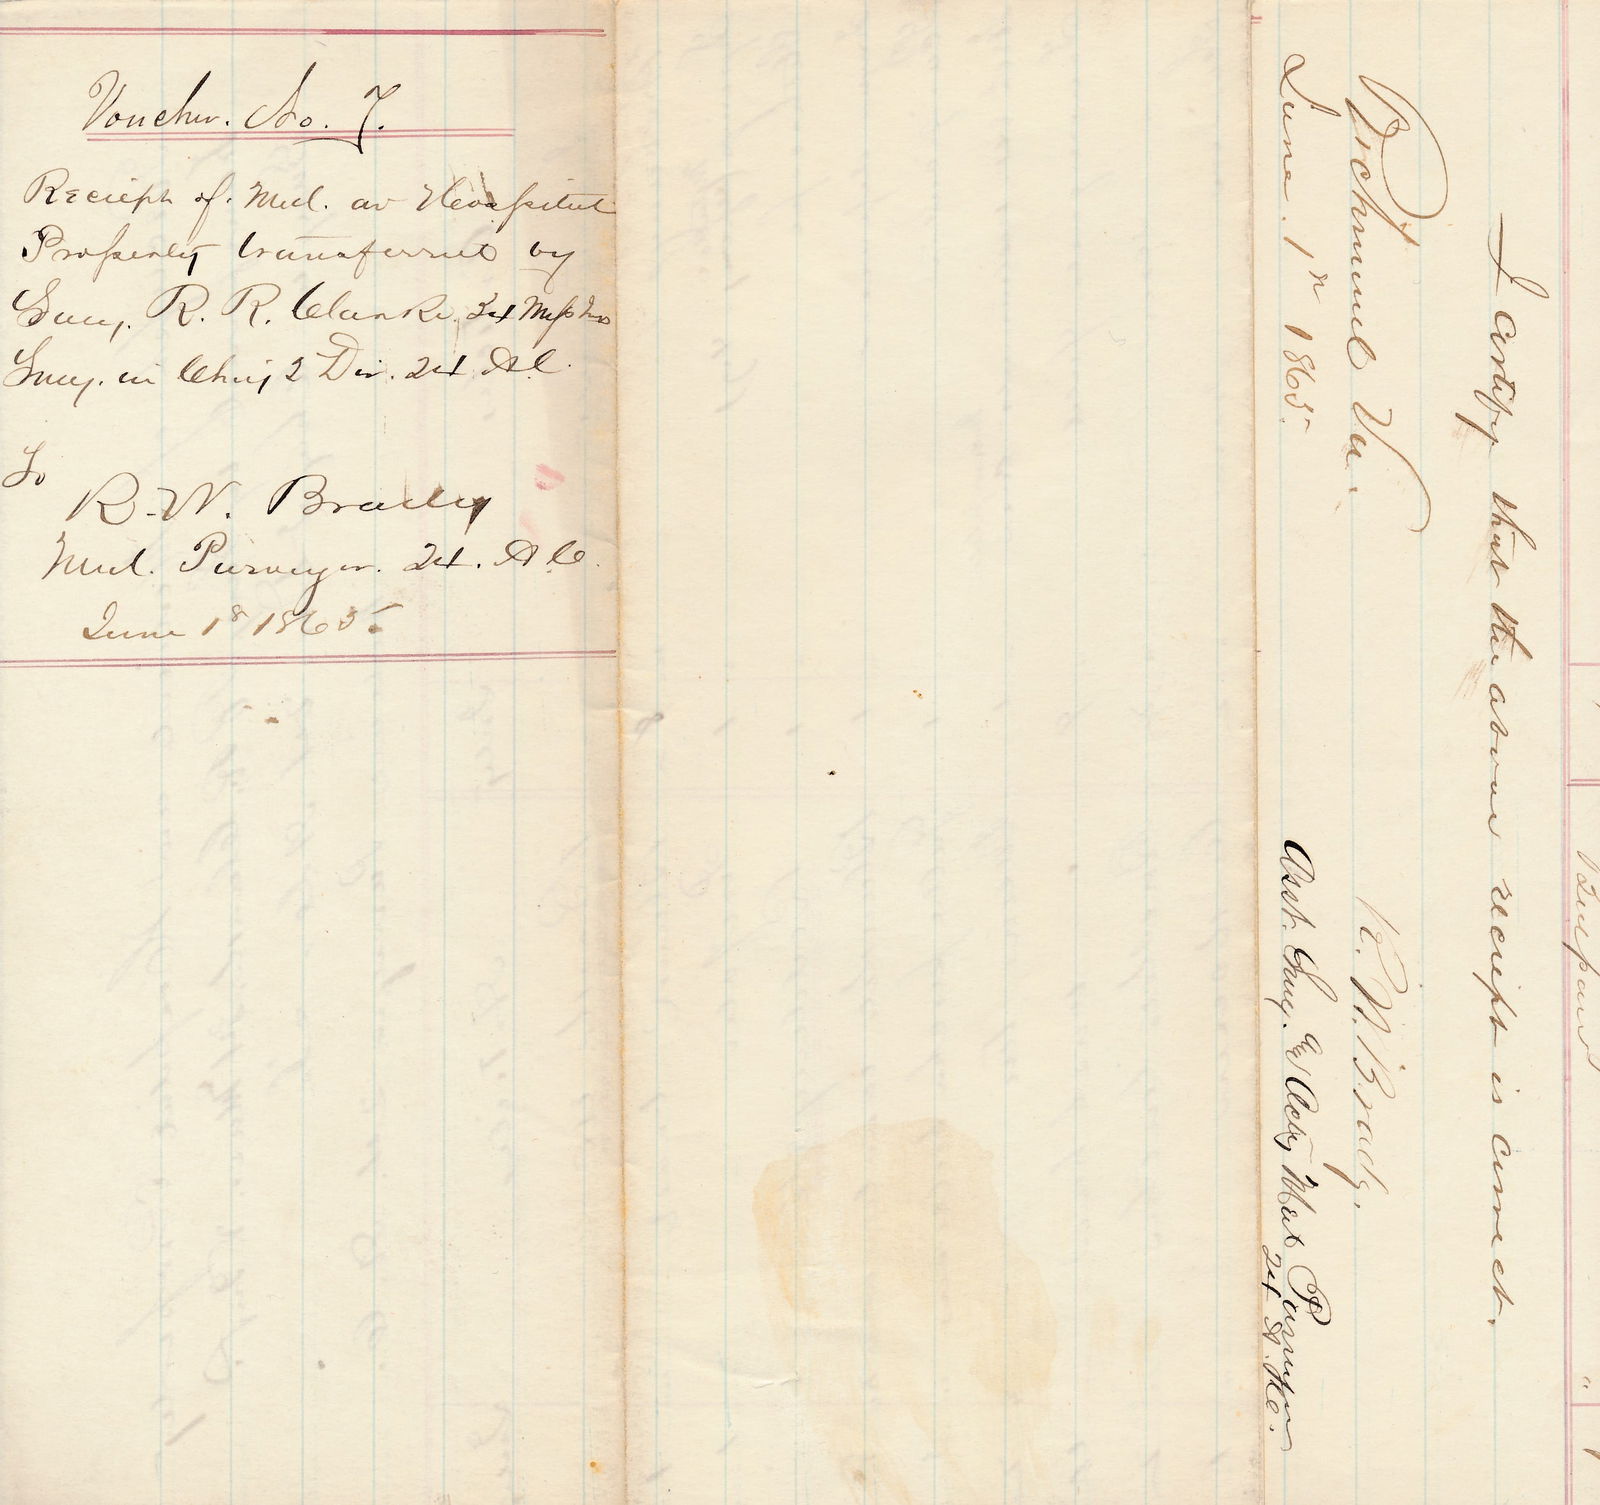 Voucher. No. 7.
Reciept of. Med. av Hospital
Property transferred by
Surg. R. R. Clarke. 34 Mass
Surg. in Chrg 2 Div. 24 A C.
To
R. W. Brady
Med. Purveyor. 24. A C.
June 1st 1865.
I certify that the above reciept is correct.
Richmond Va.
June. 1st 1865
R. W. Brady.
Asst. Surg. & Actg Med Purveyor
24 A. C.